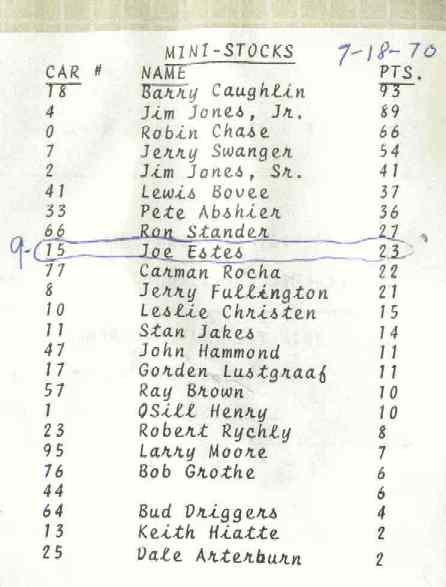 MINI-STOCKS 7-18-70
CAR # NAME PTS.
18 Barry Caughlin 93
4 Jim Jones, Jr. 89
0 Robin Chase 66
7 Jerry Swanger 54
2 Jim Jones, Sr. 41
41 Lewis Bovee 37
33 Pete Abshier 36
66 Ron Stander 27
9- 15 Joe Estes 23
77 Carman Rocha 22
8 Jerry Fullington 21
10 Leslie Christen 15
11 Stan Jakes 14
47 John Hammond 11
17 Gorden Lustgraaf 11
57 Ray Brown 10
1 OSill Henry 10
23 Robert Rychly 8
95 Larry Moore 7
76 Bob Grothe 6
44 6
64 Bud Driggers 4
13 Keith Hiatte 2
25 Dale Arterburn 2